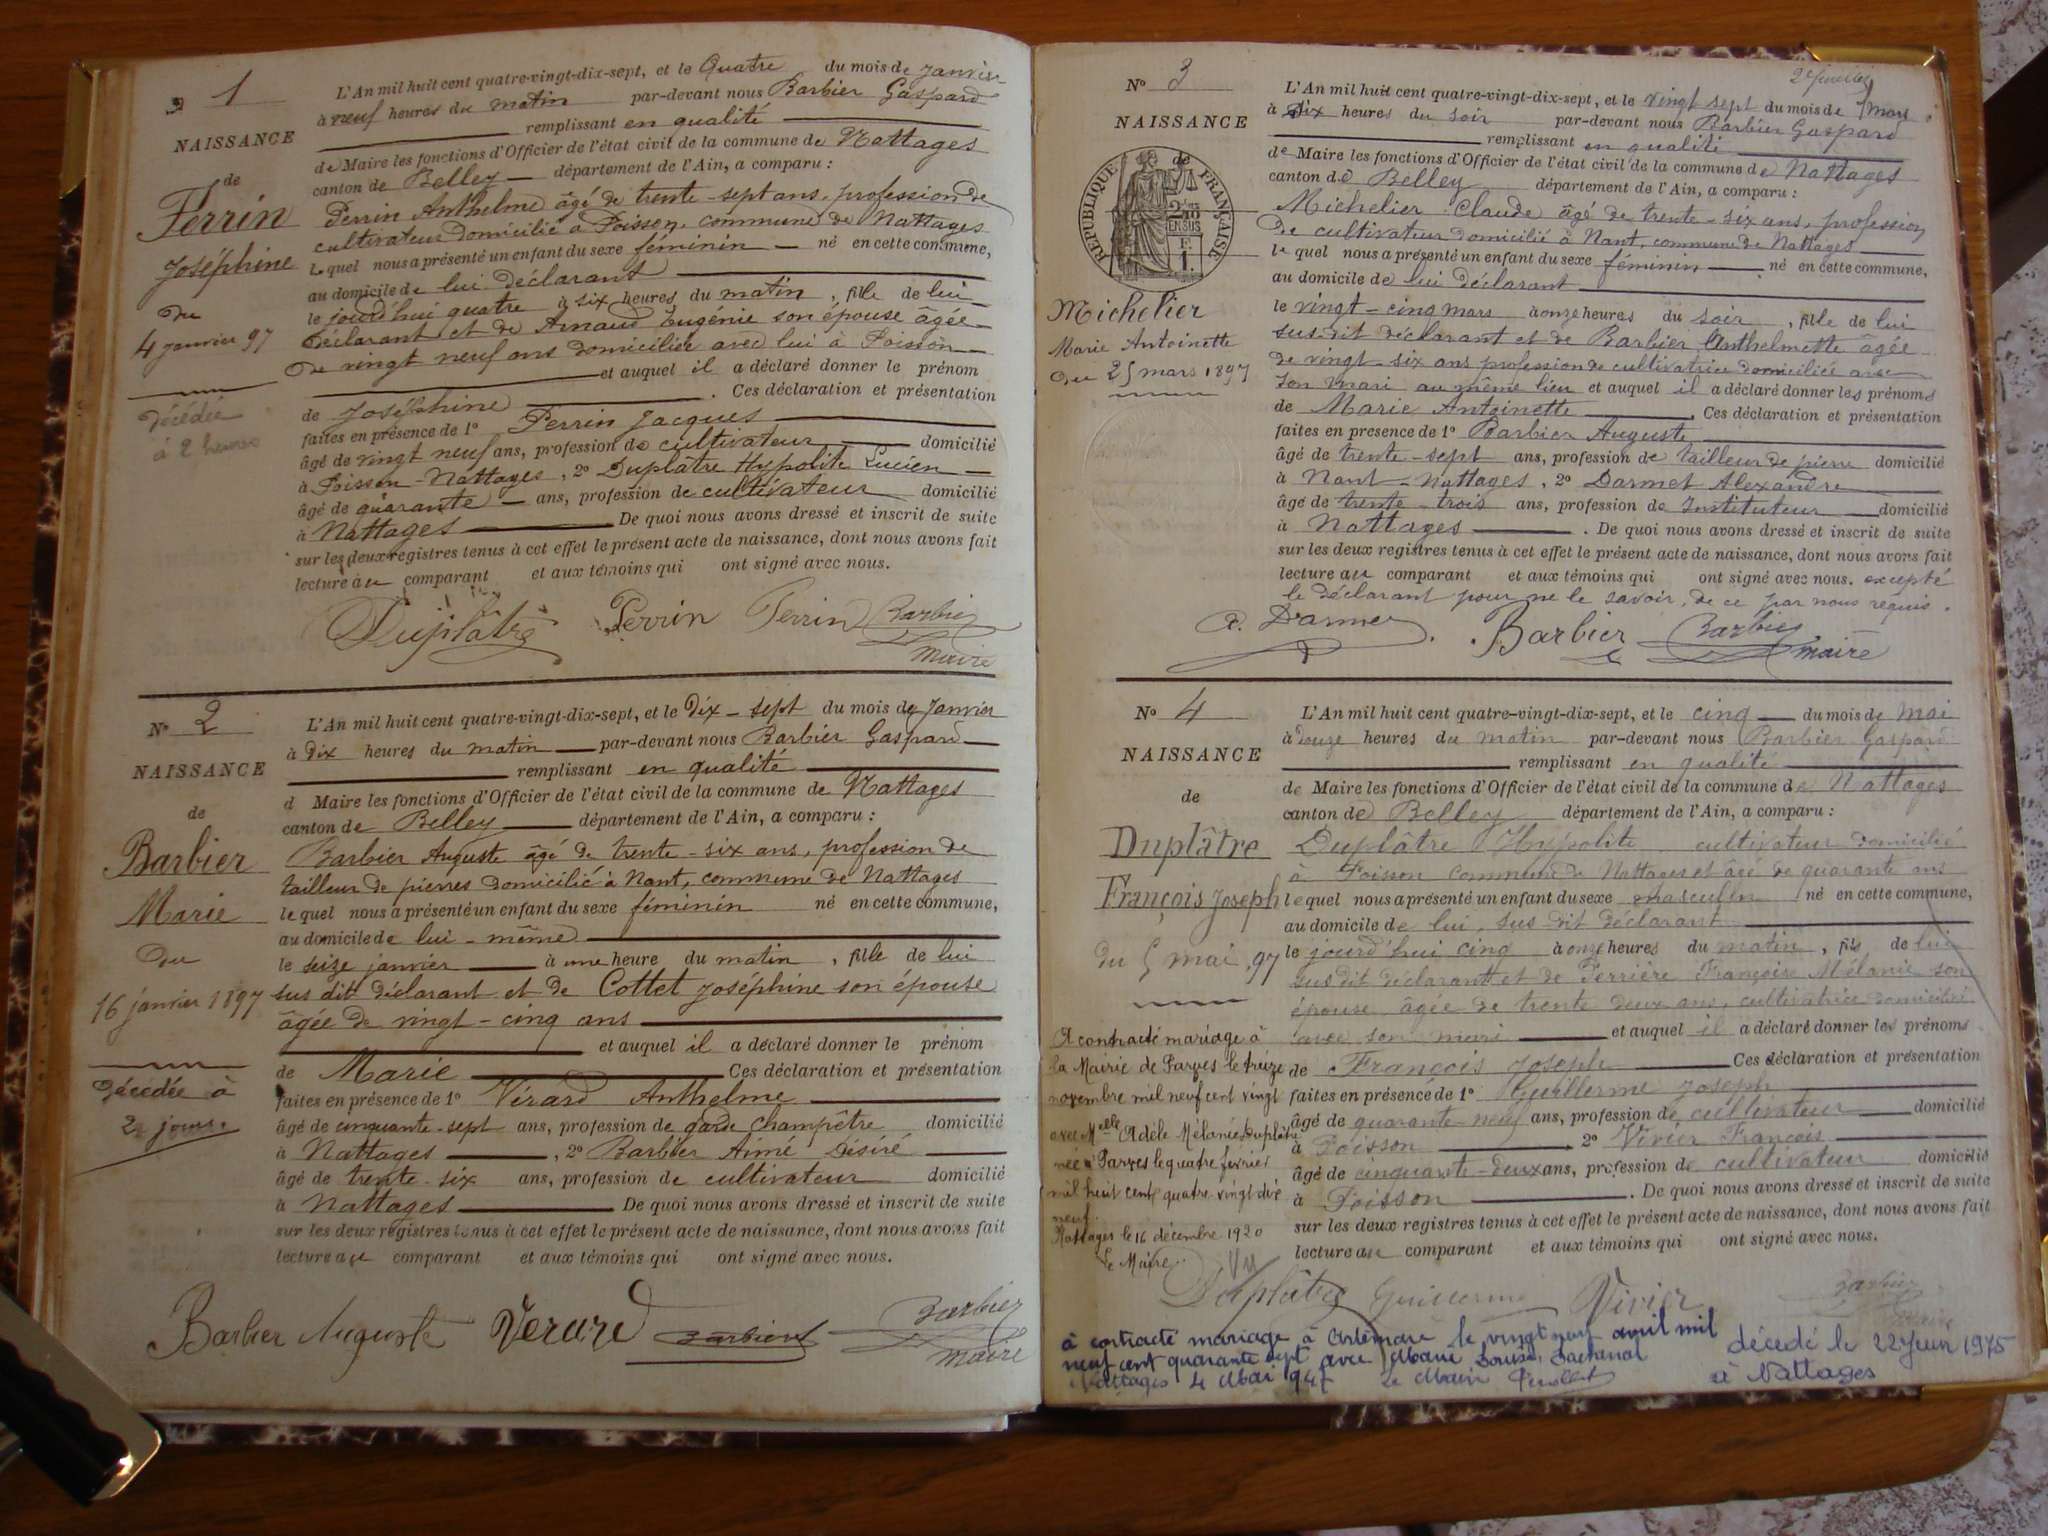 1
NAISSANCE
de
Perrin
Joséphine
du
4 janvier 97
Décédée
à 2 heures
L'An mil huit cent quatre-vingt-dix-sept, et le Quatre du mois de Janvier
à neuf heures du matin par-devant nous Barbier Gaspard
remplissant en qualité
de Maire les fonctions d'Officier de l'état civil de la commune de Nattages
canton de Belley département de l'Ain, a comparu :
Perrin Anthelme âgé de trente-sept ans, profession de
cultivateur domicilié à Poisson, commune de Nattages
lequel nous a présenté un enfant du sexe féminin né en cette commune,
au domicile de lui déclarant
le jourd'hui quatre à six heures du matin, fille de lui
déclarant et de Arnaud Eugénie son épouse âgée
de vingt neuf ans domiciliée avec lui à Poisson
et auquel il a déclaré donner le prénom
de Joséphine. Ces déclaration et présentation
faites en présence de 1° Perrin Jacques
âgé de vingt neuf ans, profession de cultivateur domicilié
à Poisson-Nattages, 2° Duplâtre Hypolite Lucien
âgé de quarante ans, profession de cultivateur domicilié
à Nattages De quoi nous avons dressé et inscrit de suite
sur les deux registres tenus à cet effet le présent acte de naissance, dont nous avons fait
lecture au comparant et aux témoins qui ont signé avec nous.
Duplâtre Perrin Perrin Barbier
Maire
N° 2
NAISSANCE
de
Barbier
Marie
du
16 janvier 1897
Décédée à
2 jours.
L'An mil huit cent quatre-vingt-dix-sept, et le Dix-sept du mois de Janvier
à Dix heures du matin par-devant nous Barbier Gaspard
remplissant en qualité
d Maire les fonctions d'Officier de l'état civil de la commune de Nattages
canton de Belley département de l'Ain, a comparu :
Barbier Auguste âgé de trente-six ans, profession de
tailleur de pierres domicilié à Nant, commune de Nattages
lequel nous a présenté un enfant du sexe féminin né en cette commune,
au domicile de lui-même
le seize janvier à une heure du matin, fille de lui
sus dit déclarant et de Cottet Joséphine son épouse
âgée de vingt-cinq ans
et auquel il a déclaré donner le prénom
de Marie Ces déclaration et présentation
faites en présence de 1° Vérard Anthelme
âgé de cinquante-sept ans, profession de garde champêtre domicilié
à Nattages, 2° Barbier Aimé Désiré
âgé de trente-six ans, profession de cultivateur domicilié
à Nattages De quoi nous avons dressé et inscrit de suite
sur les deux registres tenus à cet effet le présent acte de naissance, dont nous avons fait
lecture au comparant et aux témoins qui ont signé avec nous.
Barbier Auguste Verard Barbier Barbier
maire
2e feuillet
N° 3
NAISSANCE
de
RÉPUBLIQUE FRANÇAISE
Michelier
Marie Antoinette
du 25 mars 1897
L'An mil huit cent quatre-vingt-dix-sept, et le vingt sept du mois de Mars
à Dix heures du soir par-devant nous Barbier Gaspard
remplissant en qualité
de Maire les fonctions d'Officier de l'état civil de la commune de Nattages
canton de Belley département de l'Ain, a comparu :
Michelier Claude âgé de trente-six ans, profession
de cultivateur domicilié à Nant, commune de Nattages
lequel nous a présenté un enfant du sexe féminin né en cette commune,
au domicile de lui déclarant
le vingt-cinq mars à onze heures du soir, fille de lui
sus-dit déclarant et de Barbier Anthelmette âgée
de vingt-six ans profession de cultivatrice domiciliée avec
son mari au même lieu et auquel il a déclaré donner les prénoms
de Marie Antoinette. Ces déclaration et présentation
faites en présence de 1° Barbier Auguste
âgé de trente-sept ans, profession de tailleur de pierre domicilié
à Nant-Nattages, 2° Darmet Alexandre
âgé de trente-trois ans, profession de Instituteur domicilié
à Nattages. De quoi nous avons dressé et inscrit de suite
sur les deux registres tenus à cet effet le présent acte de naissance, dont nous avons fait
lecture au comparant et aux témoins qui ont signé avec nous. excepté
le déclarant pour ne le savoir, de ce par nous requis.
A. Darmet Barbier Barbier
maire
N° 4
NAISSANCE
de
Duplâtre
François Joseph
du 5 mai 97
L'An mil huit cent quatre-vingt-dix-sept, et le cinq du mois de Mai
à douze heures du matin par-devant nous Barbier Gaspard
remplissant en qualité
de Maire les fonctions d'Officier de l'état civil de la commune de Nattages
canton de Belley département de l'Ain, a comparu :
Duplâtre Hypolite cultivateur domicilié
à Poisson commune de Nattages et âgé de quarante ans
lequel nous a présenté un enfant du sexe masculin né en cette commune,
au domicile de lui, sus dit déclarant
le jourd'hui cinq à onze heures du matin, fils de lui
sus dit déclarant et de Perrière Françoise Mélanie son
épouse âgée de trente deux ans, cultivatrice domiciliée
avec son mari et auquel il a déclaré donner les prénoms
de François Joseph Ces déclaration et présentation
faites en présence de 1° Guillerme Joseph
âgé de quarante-neuf ans, profession de cultivateur domicilié
à Poisson 2° Vivier François
âgé de cinquante-deux ans, profession de cultivateur domicilié
à Poisson. De quoi nous avons dressé et inscrit de suite
sur les deux registres tenus à cet effet le présent acte de naissance, dont nous avons fait
lecture au comparant et aux témoins qui ont signé avec nous.
A contracté mariage à
la Mairie de Parves le treize
novembre mil neuf cent vingt
avec Melle Adèle Mélanie Duplâtre
née à Parves le quatre février
mil huit cent quatre-vingt dix
neuf.
Nattages le 16 décembre 1920
Le Maire
Vu
Duplâtre Guillerme Vivier Barbier
à contracté mariage à Artemare le vingt neuf avril mil
neuf cent quarante sept avec Marie Louise
Nattages 4 Mai 947 Le Maire
décédé le 22 Juin 1975
à Nattages